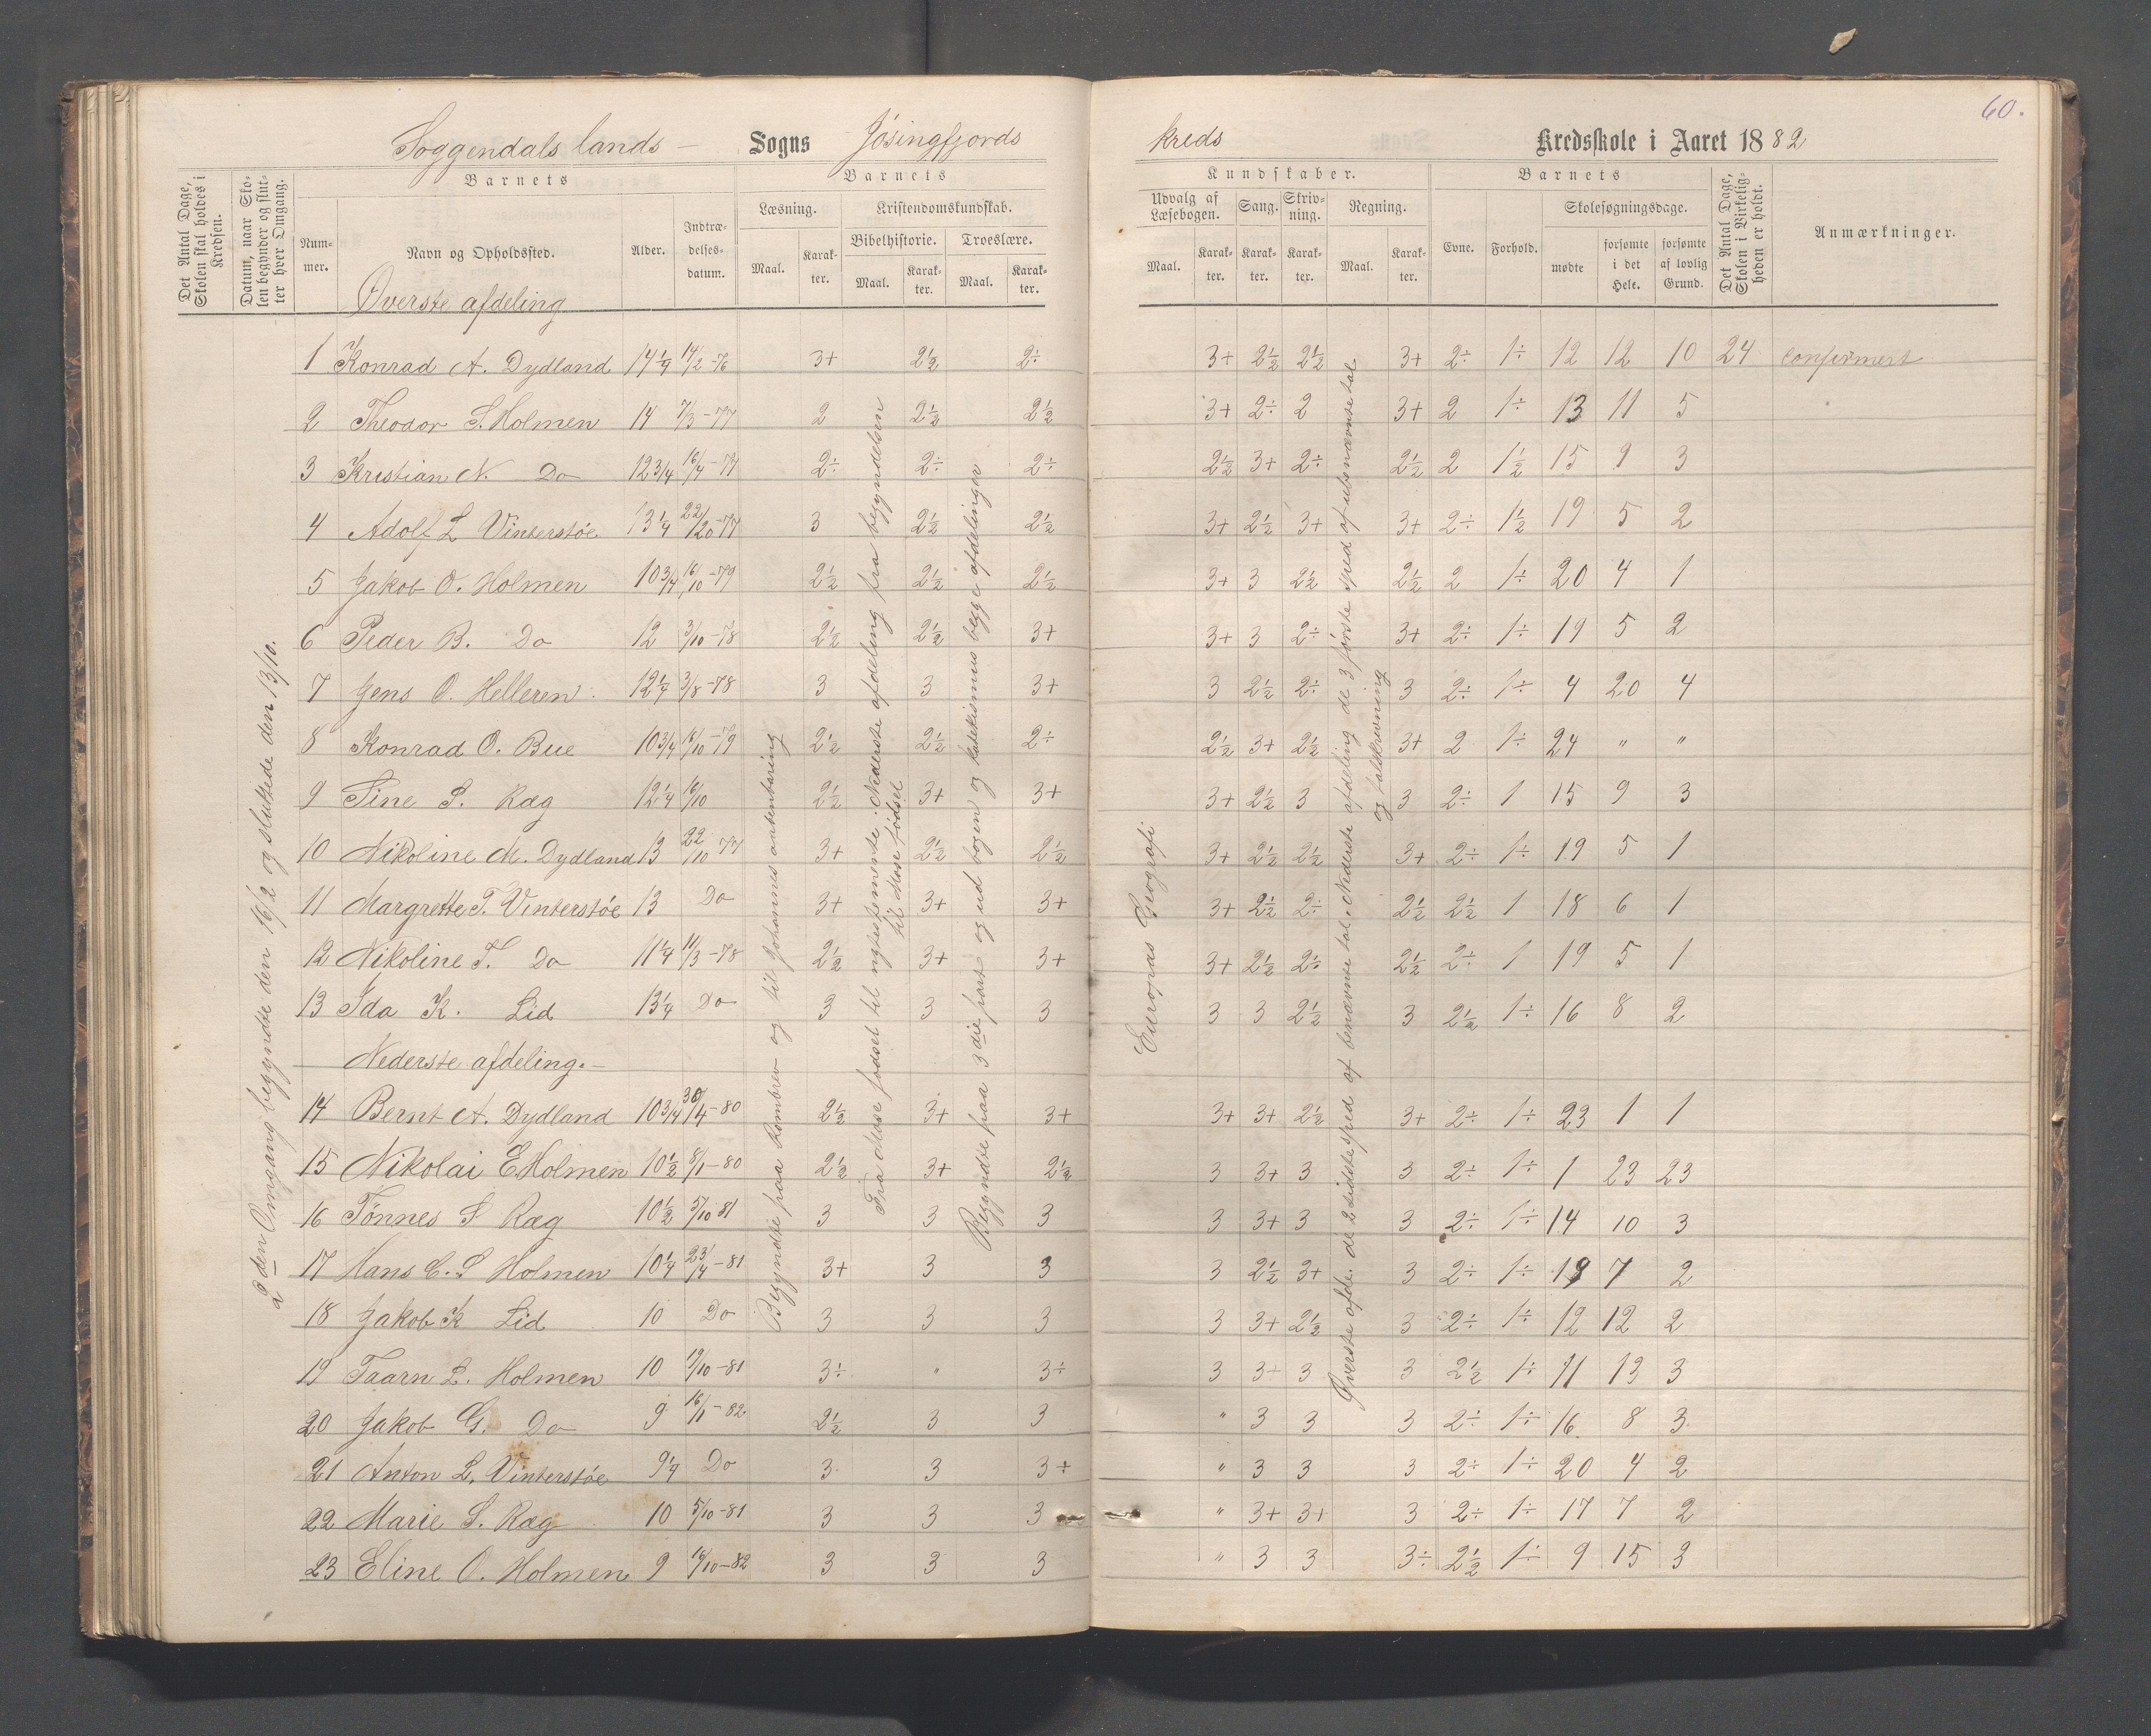 60.
Soggendals lands – Sogns Jösingfjords kreds Kredsskole i Aaret 1882
Det Antal Dage, Skolen skal holdes i Kredsen.
Datum, naar Skolen begynder og slutter hver Omgang.
Barnets
Nummer.
Navn og Opholdssted.
Alder.
Indtrædelsesdatum.
Barnets
Læsning.
Maal.
Karakter.
Kristendomskundskab.
Bibelhistorie.
Maal.
Karakter.
Troeslære.
Maal.
Karakter.
Kundskaber.
Udvalg af Læsebogen.
Maal.
Karakter.
Sang.
Karakter.
Skrivning.
Karakter.
Regning.
Maal.
Karakter.
Barnets
Evne.
Forhold.
Skolesøgningsdage.
mødte
forsømte i det Hele.
forsømte af lovlig Grund.
Det Antal Dage, Skolen i Virkeligheden er holdt.
Anmærkninger.
Øverste afdeling
1 Konrad A. Dydland 14 1/4 14/2-76 3+ 2½ 2÷ 3+ 2½ 2½ 3+ 2÷ 1÷ 12 12 10 24 confirmert
2 Theodor S. Holmen 14 7/3-77 2 2½ 2½ 3+ 2÷ 2 3+ 2 1÷ 13 11 5
3 Kristian N. Do 12 3/4 16/4-77 2÷ 2÷ 2÷ 2½ 3+ 2÷ 2½ 2 1½ 15 9 3
4 Adolf L Vinterstöe 13 1/4 22/10-77 3 2½ 2½ 3+ 2½ 3+ 3+ 2÷ 1½ 19 5 2
5 Jakob O. Holmen 10 3/4 16/10-79 2½ 2½ 2½ 3+ 3 2½ 2½ 2 1÷ 20 4 1
6 Peder B. Do 12 3/10-78 2½ 2½ 3+ 3+ 3 2÷ 3+ 2÷ 1÷ 19 5 2
7 Jens O. Helleren 12 1/4 3/8-78 3 3 3+ 3 2½ 2÷ 3 2÷ 1÷ 4 20 4
8 Konrad O. Bue 10 3/4 16/10-79 2½ 2½ 2÷ 2½ 3+ 2½ 3+ 2 1÷ 24 " "
9 Sine S. Ræg 12 1/4 16/10 2½ 3+ 3+ 3+ 2½ 3 3 2÷ 1 15 9 3
10 Nikoline M. Dydland 13 22/10 77 3+ 2½ 2½ 3+ 2½ 2½ 3+ 2÷ 1÷ 19 5 1
11 Margrette T. Vinterstöe 13 Do 3+ 3+ 3+ 3+ 2½ 2÷ 2½ 2½ 1 18 6 1
12 Nikoline T. Do 11 1/4 11/3-78 2½ 3+ 3+ 3+ 2½ 2÷ 2½ 2÷ 1 19 5 1
13 Ida K. Lid 13 1/4 Do 3 3 3 3 3 2½ 3 2½ 1÷ 16 8 2
Nederste afdeling. –
14 Bernt A. Dydland 10 3/4 30/4-80 2½ 3+ 3+ 3+ 3+ 2½ 3+ 2÷ 1÷ 23 1 1
15 Nikolai E Holmen 10½ 8/1-80 2½ 3+ 2½ 3 3+ 3 3 2÷ 1÷ 1 23 23
16 Tönnes S Ræg 10½ 5/10 81 3 3 3 3 3+ 3 3 2÷ 1÷ 14 10 3
17 Hans C. S Holmen 10 1/4 23/4-81 3+ 3 3 3 2½ 3+ 3 2÷ 1÷ 19 7 2
18 Jakob K Lid 10 Do 3 3 3 3 3+ 2½ 3 2÷ 1÷ 12 12 2
19 Taarn L. Holmen 10 19/10-81 3÷ " 3÷ 3 3+ 3 3 2½ 1÷ 11 13 3
20 Jakob G. Do 9 16/1-82 2½ 3 3 " 3 3 3 2÷ 1÷ 16 8 3
21 Anton L. Vinterstöe 9 1/4 Do 3 3 3+ " 3 3 3 2÷ 1÷ 20 4 2
22 Marie S. Ræg 10 5/10-81 3 3 3 " 3+ 3+ 3 2÷ 1÷ 17 7 2
23 Eline O. Holmen 9 16/10-82 3 3 3 " 3 3 3÷ 2½ 1÷ 9 15 3
2den Omgang begyndte den 16/2 og sluttede den 13/10.
Begyndte paa Rombrev og til Johannes aabenbaring
Fra Mose fødsel til ngtestemente. Nederste afdeling fra begyndelsen til Mose fødsel
Begyndte paa 3die part og ud bogen og katekismus begge afdelinger
Europas Geografi
Øverste afde. de 2 sidste sped af benævnte tal. Nederste afdeling de 3 første sped af ubenævnte tal og talskrivning